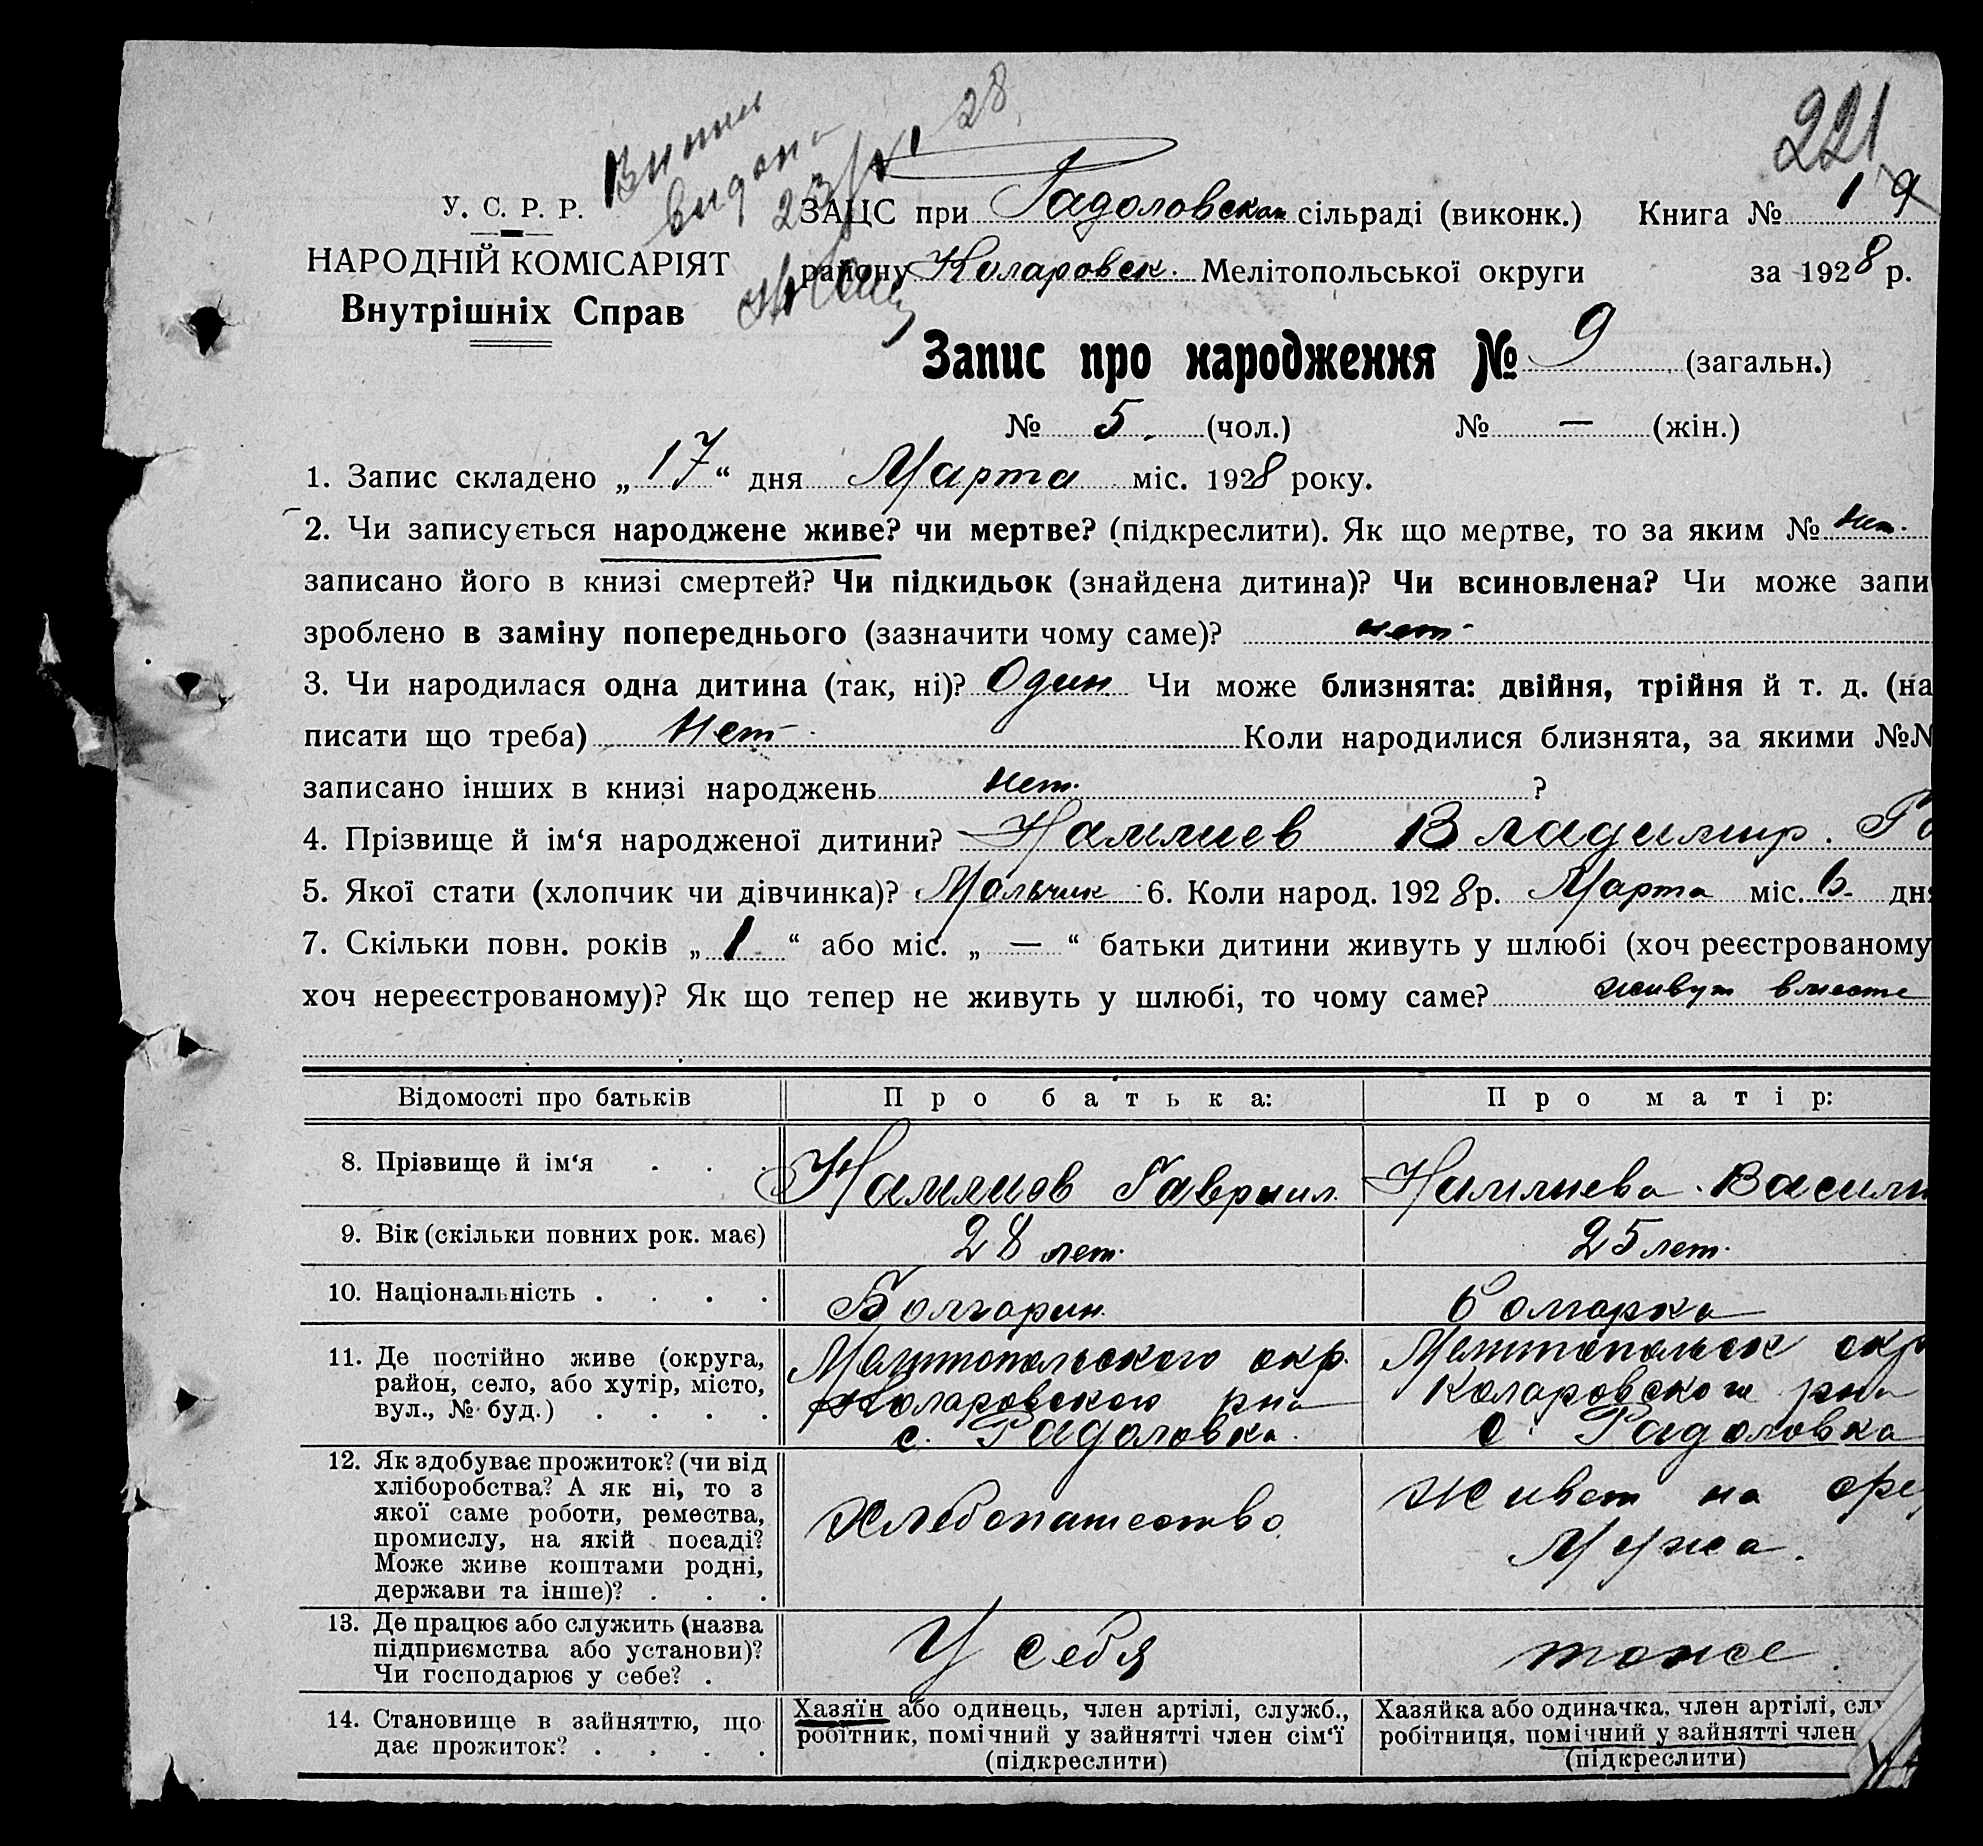 221
28
видана
23/XI
У. С. Р. Р.
ЗАЦС при Радоловском сільраді (виконк.) Книга № 1
НАРОДНІЙ КОМІСАРІЯТ
району Коларовск. Мелітопольської округи за 1928 р.
Внутрішніх Справ
Запис про народження № 9 (загальн.)
№ 5. (чол.) № — (жін.)
1. Запис складено „17“ дня Марта міс. 1928 року.
2. Чи записується народжене живе? чи мертве? (підкреслити). Як що мертве, то за яким № нет.
записано його в книзі смертей? Чи підкидьок (знайдена дитина)? Чи всиновлена? Чи може запи
зроблено в заміну попереднього (зазначити чому саме)? нет
3. Чи народилася одна дитина (так, ні)? Один Чи може близнята: двійня, трійня й т. д. (на
писати що треба) Нет Коли народилися близнята, за якими №№
записано інших в книзі народжень нет. ?
4. Прізвище й ім‘я народженої дитини? Владимир.
5. Якої стати (хлопчик чи дівчинка)? Мальчик 6. Коли народ. 1928 р. Марта міс. 6 дня
7. Скільки повн. років „1“ або міс. „—“ батьки дитини живуть у шлюбі (хоч реєстрованому
хоч нереєстрованому)? Як що тепер не живуть у шлюбі, то чому саме? живут вместе
Відомості про батьків Про батька: Про матір:
8. Прізвище й ім‘я . . . Гавриил.
9. Вік (скільки повних рок. має) 28 лет. 25 лет.
10. Національність . . . . Болгарин. болгарка
11. Де постійно живе (округа, Мелитопольского окр. Мелитопольск окр
район, село, або хутір, місто, Коларовского рна Коларовского рна
вул., № буд.) . . . . с. Радоловка. с. Радоловка
12. Як здобуває прожиток? (чи від
хліборобства? А як ні, то з Живет на сре
якої саме роботи, ремества, Хлебопашество.
промислу, на якій посаді? Мужа.
Може живе коштами родні,
держави та інше)? . . .
13. Де працює або служить (назва
підприємства або установи)? У себя тоже.
Чи господарює у себе? .
14. Становище в зайняттю, що Хазяїн або одинець, член артілі, служб., Хазяйка або одиначка, член артілі, слу
дає прожиток? . . . . робітник, помічний у зайнятті член сім‘ї робітниця, помічний у зайнятті член
(підкреслити) (підкреслити)